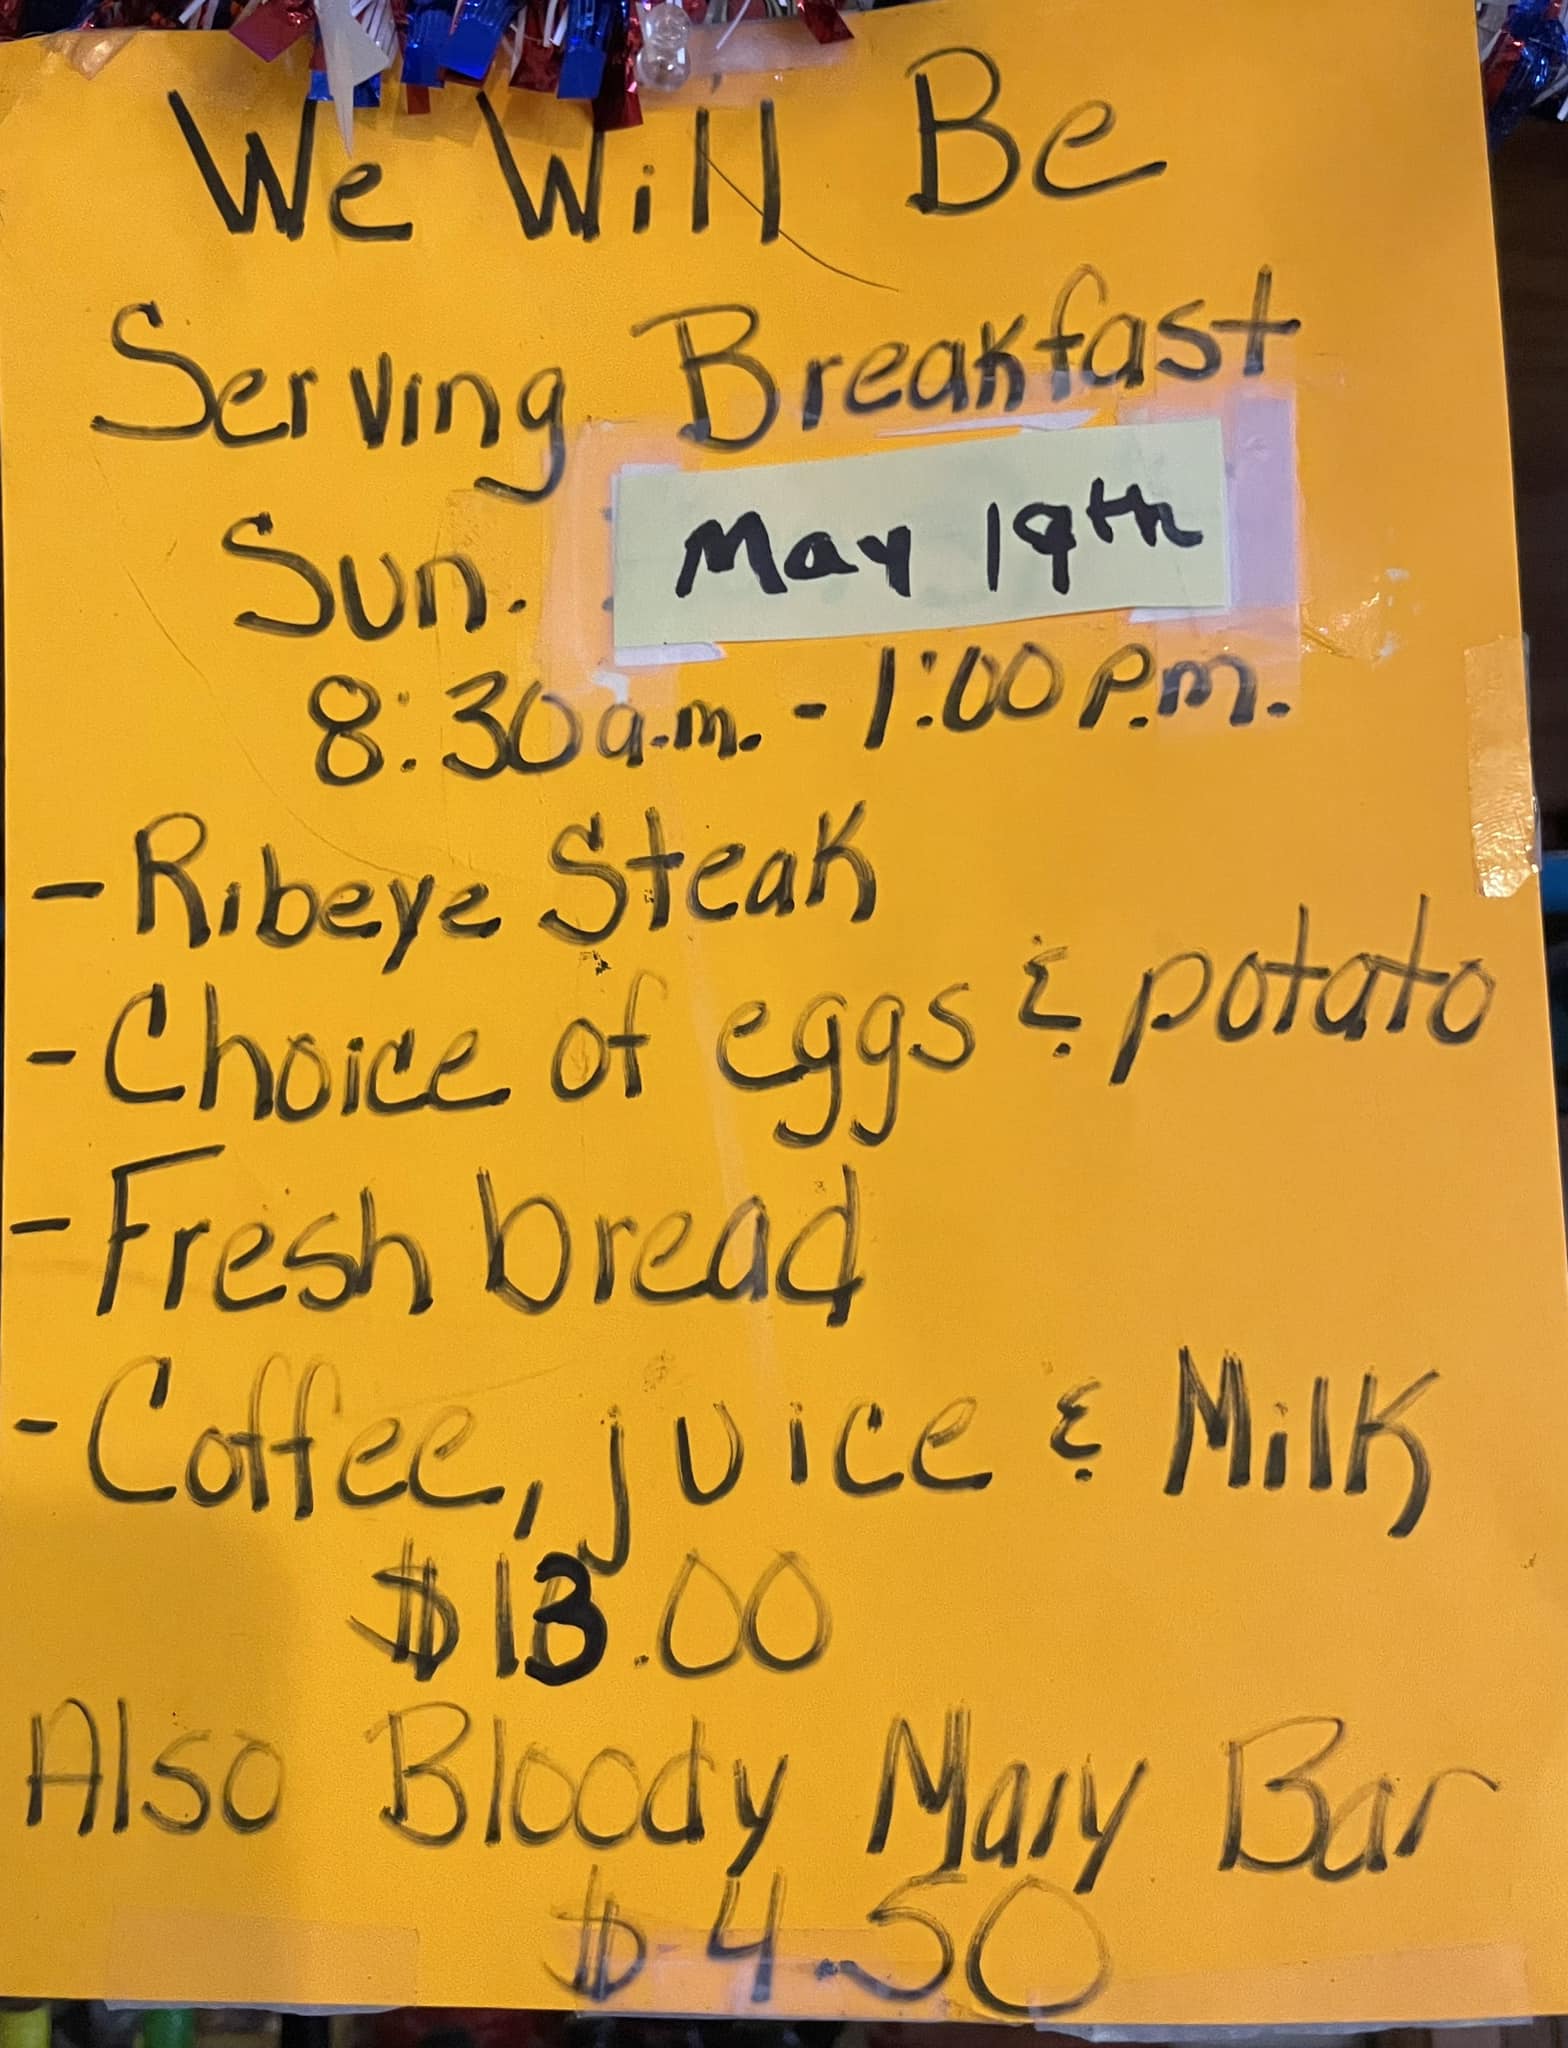 We Will Be
Serving Breakfast
Sun. May 19th
8:30a.m. - 1:00 P.m.
- Ribeye Steak
- Choice of eggs & potato
- Fresh bread
- Coffee, juice & Milk
$13.00
Also Bloody Mary Bar
$4.50